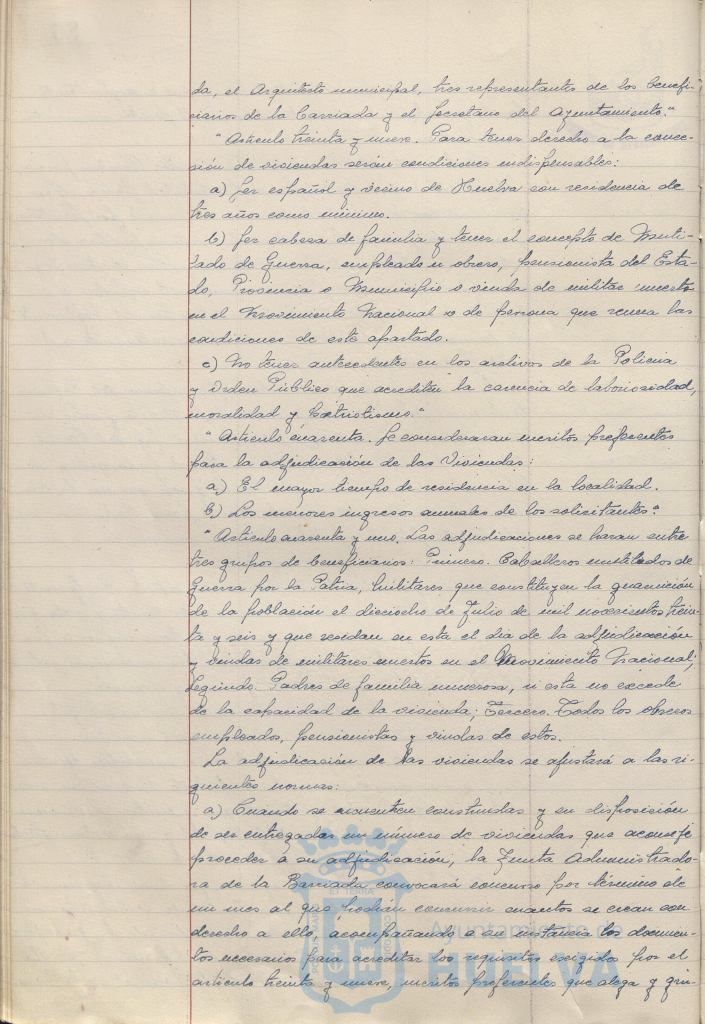 da, el Arquitecto municipal, tres representantes de los benefi-
ciarios de la Barriada y el Secretario del Ayuntamiento."
"Artículo treinta y nueve. Para tener derecho a la conce-
sión de viviendas serán condiciones indispensables:
a) Ser español y vecino de Huelva con residencia de
tres años como mínimo.
b) Ser cabeza de familia y tener el concepto de Muti-
lado de Guerra, empleado u obrero, pensionista del Esta-
do, Provincia o Municipio o viuda de militar muerto
en el Movimiento Nacional o de persona que reuna las
condiciones de este apartado.
c) No tener antecedentes en los archivos de la Policia
y Orden Público que acrediten la carencia de laboriosidad,
moralidad y Patriotismo."
"Artículo cuarenta. Se consideraran meritos preferentes
para la adjudicación de las Viviendas:
a) El mayor tiempo de residencia en la localidad.
b) Los menores ingresos anuales de los solicitantes."
"Artículo cuarenta y uno. Las adjudicaciones se haran entre
tres grupos de beneficiarios: Primero. Caballeros mutilados de
Guerra por la Patria, Militares que constituyen la guarnición
de la población el dieciocho de Julio de mil novecientos trein-
ta y seis y que residan en esta el dia de la adjudicación
y viudas de militares muertos en el Movimiento Nacional;
Segundo. Padres de familia numerosa, si esta no excede
de la capacidad de la vivienda; Tercero. Todos los obreros
empleados, pensionistas y viudas de estos.
La adjudicación de las viviendas se ajustará a las si-
guientes normas:
a) Cuando se encuentren construidas y en disposición
de ser entregadas un número de viviendas que aconseje
proceder a su adjudicación, la Junta Administrado-
ra de la Barriada convocará concurso por término de
un mes al que podrán concurrir cuantos se crean con
derecho a ello, acompañando a su instancia los documen-
tos necesarios para acreditar los requisitos exigidos por el
artículo treinta y nueve, meritos preferentes que alega y gru-
Ayuntamiento de
HUELVA